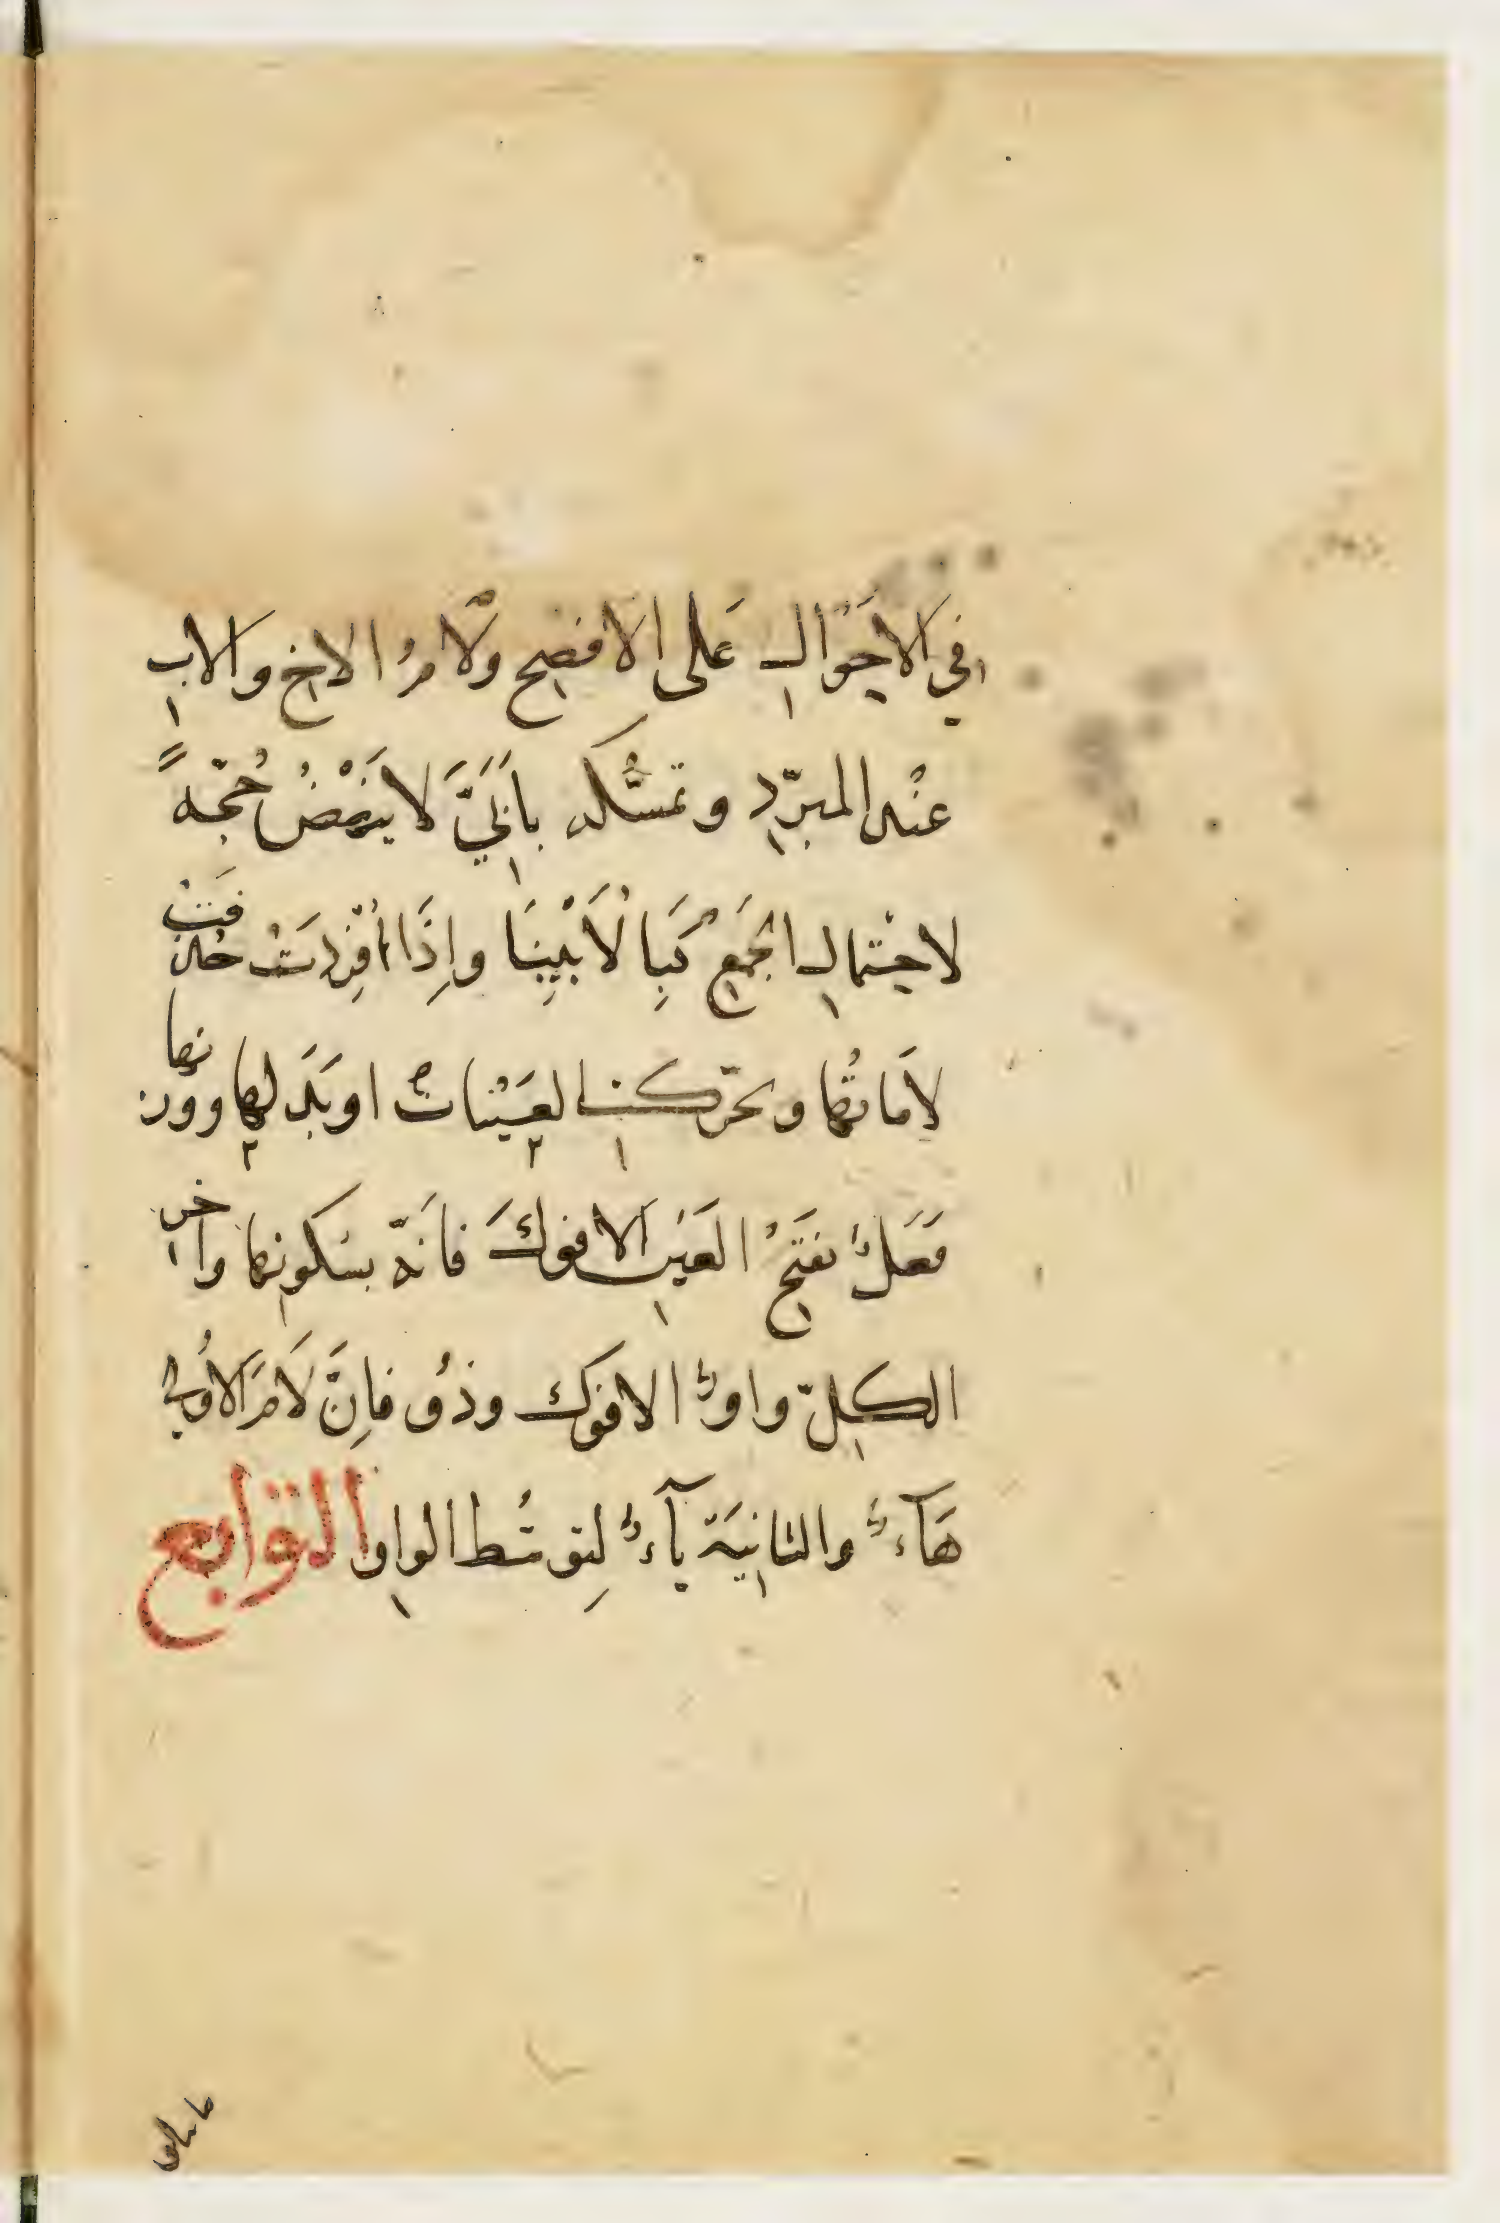 في الاَحْوَالِ عَلى الافصحِ ولَامُ الاخِ والابِ
عنْد المبرّدِ وتمسّكه بأَبَيَّ لَا ينْهَضُ حُجّةً
لاحْتمالِ الجَمعِ كَبِالْاَبْيِنَا واِذَا اُفْرِدَتْ حُذِفَتْ
لَاماتُها وتحرّكتِ العَيْناتُ او بَدَلها ووزنها
فَعَلٌ بفتحِ العَيْنِ الا فوكَ فانّه بسكونها وآخر
الكلِّ واوٌ الا فوكَ وذُو فاِنَّ لَامَ الاُولى
هَآءٌ والثانِيَة يآءٌ لِتوسّطِ الواوِ التوابع